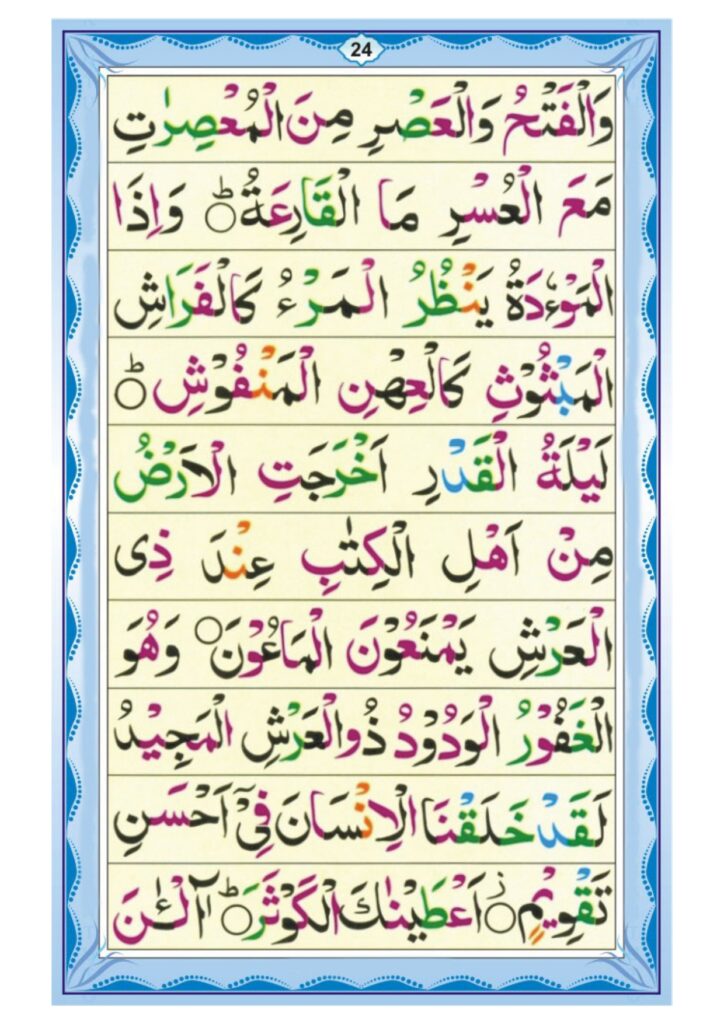 24
وَالْفَتْحُ وَالْعَصْرِ مِنَ الْمُعْصِرٰتِ
مَعَ الْعُسْرِ مَا الْقَارِعَةُ ؕ وَاِذَا
الْمَوْءٗدَةُ يَنْظُرُ الْمَرْءُ كَالْفَرَاشِ
الْمَبْثُوْثِ كَالْعِهْنِ الْمَنْفُوْشِ ؕ
لَيْلَةُ الْقَدْرِ اَخْرَجَتِ الْاَرْضُ
مِنْ اَهْلِ الْكِتٰبِ عِنْدَ ذِى
الْعَرْشِ يَمْنَعُوْنَ الْمَاعُوْنَ ۝ وَهُوَ
الْغَفُوْرُ الْوَدُوْدُ ذُوالْعَرْشِ الْمَجِيْدُ
لَقَدْ خَلَقْنَا الْاِنْسَانَ فِىْۤ اَحْسَنِ
تَقْوِيْمٍ ۝ز اَعْطَيْنٰكَ الْكَوْثَرَ ؕ آلْـٰٔنَ